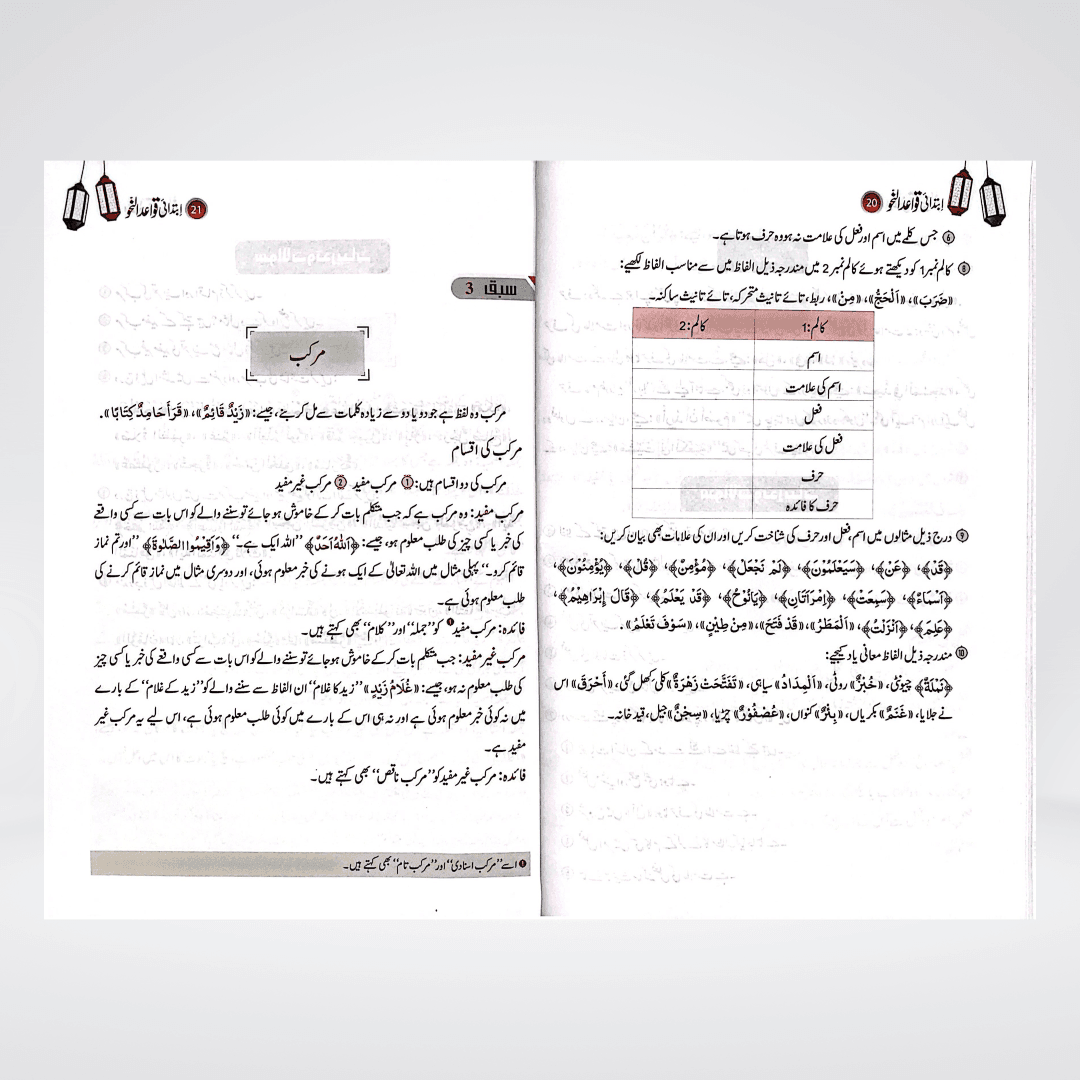 ابتدائی قواعد النحو 20
⑥ جس کلمے میں اسم اور فعل کی علامت نہ ہو وہ حرف ہوتا ہے۔
⑧ کالم نمبر 1 کو دیکھتے ہوئے کالم نمبر 2 میں مندرجہ ذیل الفاظ میں سے مناسب الفاظ لکھیے:
«ضَرَبَ»، «اَلْحَجُّ»، «مِنْ»، ربط، تائے تانیث متحرکہ، تائے تانیث ساکنہ۔
کالم:1 کالم:2
اسم
اسم کی علامت
فعل
فعل کی علامت
حرف
حرف کا فائدہ
⑨ درج ذیل مثالوں میں اسم، فعل اور حرف کی شناخت کریں اور ان کی علامات بھی بیان کریں:
﴿قَدْ﴾، ﴿عَنْ﴾، ﴿سَيَعْلَمُوْنَ﴾، ﴿لَمْ نَجْعَلْ﴾، ﴿مُؤْمِنٌ﴾، ﴿قُلْ﴾، ﴿يُؤْمِنُوْنَ﴾،
﴿اَسْمَاءٌ﴾، ﴿سَمِعَتْ﴾، ﴿اِمْرَاَتَانِ﴾، ﴿يَانُوْحُ﴾، ﴿قَدْ يَعْلَمُ﴾، ﴿قَالَ إِبْرَاهِيْمُ﴾،
﴿عَلِمَ﴾، ﴿اَنْزَلْتُ﴾، «اَلْمَطَرُ»، «قَدْ فَتَحَ»، «مِنْ طِيْنٍ»، «سَوْفَ تَعْلَمُ».
⑩ مندرجہ ذیل الفاظ معانی یاد کیجیے:
﴿نَمْلَةٌ﴾ چیونٹی، «خُبْزٌ» روٹی، «اَلْمِدَادُ» سیاہی، «تَفَتَّحَتْ زَهْرَةٌ» کلی کھل گئی، «أَحْرَقَ» اس
نے جلایا، «غَنَمٌ» بکریاں، «بِئْرٌ» کنواں، «عُصْفُوْرٌ» چڑیا، «سِجْنٌ» جیل، قید خانہ۔
ابتدائی قواعد النحو 21
سبق 3
مرکب
مرکب وہ لفظ ہے جو دو یا دو سے زیادہ کلمات سے مل کر بنے، جیسے: «زَيْدٌ قَائِمٌ»، «قَرَأَ حَامِدٌ كِتَابًا».
مرکب کی اقسام
مرکب کی دو اقسام ہیں: ① مرکب مفید ② مرکب غیر مفید
مرکب مفید: وہ مرکب ہے کہ جب متکلم بات کر کے خاموش ہو جائے تو سننے والے کو اس بات سے کسی واقعے
کی خبر یا کسی چیز کی طلب معلوم ہو، جیسے: ﴿اَللّٰهُ اَحَدٌ﴾ ’’اللہ ایک ہے۔‘‘ ﴿وَاَقِيْمُوا الصَّلٰوةَ﴾ ’’اور تم نماز
قائم کرو۔‘‘ پہلی مثال میں اللہ تعالیٰ کے ایک ہونے کی خبر معلوم ہوئی، اور دوسری مثال میں نماز قائم کرنے کی
طلب معلوم ہوئی ہے۔
فائدہ: مرکب مفید❶ کو ’’جملہ‘‘ اور ’’کلام‘‘ بھی کہتے ہیں۔
مرکب غیر مفید: جب متکلم بات کر کے خاموش ہو جائے تو سننے والے کو اس بات سے کسی واقعے کی خبر یا کسی چیز
کی طلب معلوم نہ ہو، جیسے: «غُلَامُ زَيْدٍ» ’’زید کا غلام‘‘ ان الفاظ سے سننے والے کو ’’زید کے غلام‘‘ کے بارے
میں نہ کوئی خبر معلوم ہوئی ہے اور نہ ہی اس کے بارے میں کوئی طلب معلوم ہوئی ہے، اس لیے یہ مرکب غیر
مفید ہے۔
فائدہ: مرکب غیر مفید کو ’’مرکب ناقص‘‘ بھی کہتے ہیں۔
❶ اسے ’’مرکب اسنادی‘‘ اور ’’مرکب تام‘‘ بھی کہتے ہیں۔